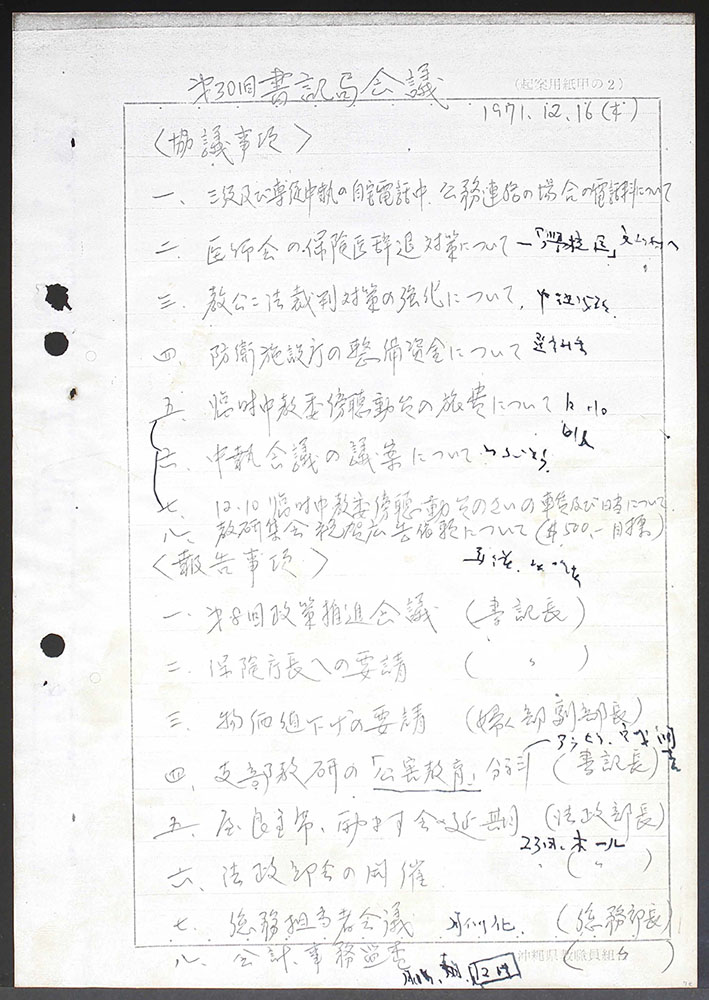 (起案用紙甲の2)
第30回書記局会議
1971.12.16(木)
〈協議事項〉
一、三役及び専従中執の自宅電話中、公務連絡の場合の電話料について
二、医師会の保険医辞退対策について
三、教公二法裁判対策の強化について、
四、防衛施設庁の整備資金について
五、臨時中教委傍聴動員の旅費について 12.10
六、中執会議の議案について
七、12.10臨時中教委傍聴動員のさいの車賃及び日当について
八、教研集会祝賀広告依頼について($500.-目標)
〈報告事項〉
一、第8回政策推進会議 (書記長)
二、保険庁長への要請 ( 〃 )
三、物価値下げの要請 (婦人部副部長)
四、支部教研の「公害教育」分科 (書記長)
五、屋良主席、励ます会延期 (法政部長)
23日、ホール
六、法政部会の開催 ( 〃 )
七、総務担当者会議 (総務部長)
八、会計、事務監査 ( 〃 )
沖縄県教職員組合